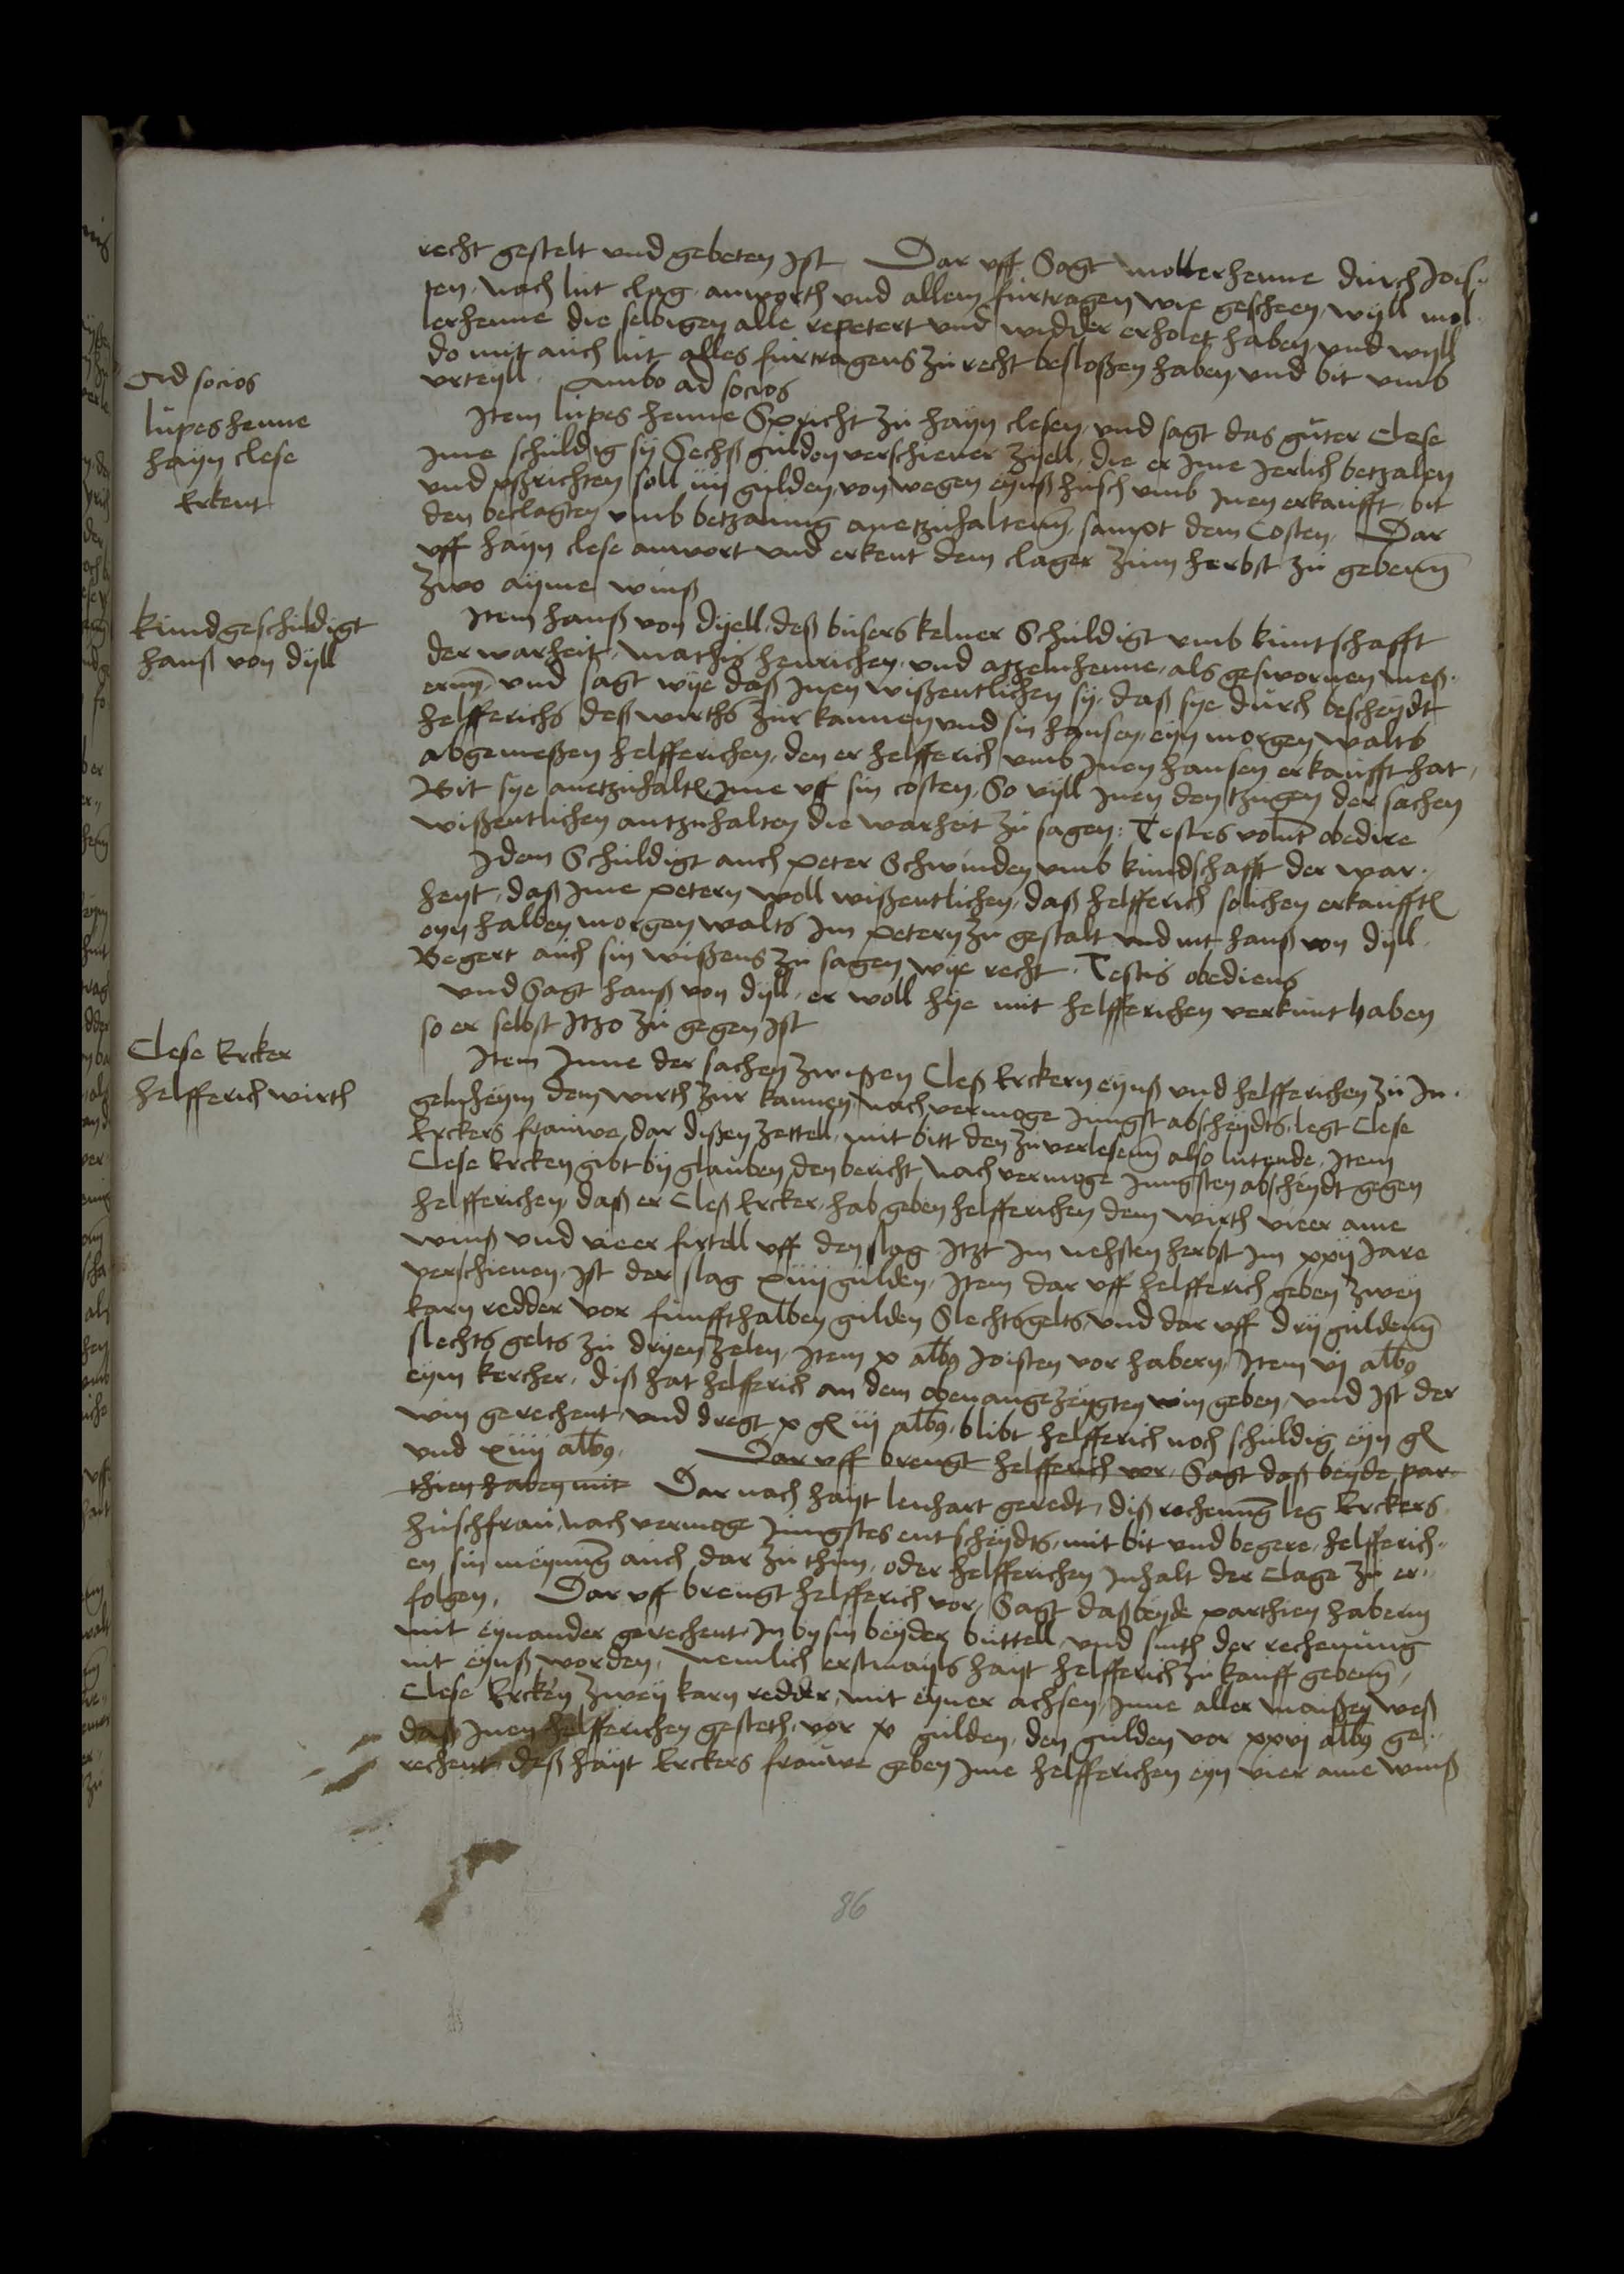 recht gestelt und gebeten ist Dar uff Sagt mollerhenne durch Jois..
ten, nach lut clag antworth und allem furtragen wie gescheen, wyll mol.
lerhenne die selbigen alle repetert und widder erholet haben und wyll
do mit auch lut alles furtragens zu recht besloßen haben, und bit umb
urteyll. Ambo ad socios
Ad socios
lupeshenne
hayn clese
Erkent
Item lupes henne Spricht zu hayn clesen, und sagt das guter Clese
Ime schuldig sy Sechß gulden verschiener zyell, die er Ime Jerlich betzalen
und ußrichten soll iiij gulden, von wegen eynß husch umb Inen erkaufft, bit
den beclagten umb betzalung anetzuhaltenn, sampt dem Costen, Dar
uff hayn clese antwort und erkent dem clager zum herbst zu gebenn
zwo ayme winß
kundgeschuldigt
hanß von dyll
Item hanß von dyell, deß busers kelner Schuldigt umb kuntschafft
der warheit, mathis henrichen, und atzelnhenne, als geswornen meß.
ernn, und sagt wye daß Inen wißentlichen sy, daß sye durch bescheydt
helfferichs deß wirths zur kannen und sin hansen, eyn morgen walts
abgemeßen helfferichen, den er helfferich umb Inen hansen erkaufft hat,
Bit sye anetzuhalten Ime uff sin costen, So vyll Inen den tzugen der sachen
wißentlichen antzuhalten die warheit zu sagen: Testes volunt obedire
Idem Schuldigt auch peter Schwinden umb kundschafft der war..
heyt, daß Ime petern woll wißentlichen, daß helfferich solichen erkaufften
eyn halben morgen walts Im petern zu gestalt und nit hanß von dyll.
Begert auch sin wißens zu sagen wye recht. Testis obediens
Und Sagt hanß von dyll, er woll hye mit helfferichen verkunt haben
so er selbst Itzo zu gegen ist
Clese Ercker
helfferich wirth
Item Inne der sachen zwißen Cleß Erckern eynß und helfferichen zu In.
gelnheym dem wirth zur kannen, nach vermoge Jungst abscheydts, legt Clese
Erckers frauwe, dar dißen zettell, mit bitt den zu verlesenn also lutende, Item
Clese Ercken gibt by glauben, den bericht nach vermoge Jungsten abscheydt gegen
helfferichen, daß er Cleß Ercker, hab geben helfferichen dem wirth vieer ame
winß und vieer firtell uff den slag Itzt Im nehsten herbst Im xxij Jare
verschienen, Ist der slag xiiij gulden, Item dar uff helfferich geben zwey
karn redder vor funffthalben gulden Slechtsgelts, und dar uff dry guldenn
slechts gelts zu dryen zelen, Item x albus Joisten vor habern, Item vj albus
eym kercher, diß hat helfferich an dem obenangezeygten win geben, und ist der
win gerechent, und dregt x gl iij albus, blibt helfferich noch schuldig eyn gl
und xiiij albus. Dar uff brengt helfferich vor, Sagt daß beyde par-
thien haben mit Dar nach hayt lenhart geredt, diß rechenung leg Erckers
huschfrau, nach vermoge Jungstes entscheydts, mit bit und begere, helfferich..
en sin meynung auch dar zu thun, oder helfferichen Inhalt der Clage zu er..
folgen, Dar uff brengt helfferich vor, Sagt daß beyde parthien habenn
mit eynander gerechent, In by sin beyder buttell, und sinth der rechenung
nit eynß worden, nemlich erstmayls hayt helfferich zu kauff gebenn,
Clese Ercken zwey karn redder, mit eyner achsen, Inne aller maißen weß
daß Inen helfferichen gesteth, vor v gulden, den gulden vor xxvj albus ge..
rechent, deß hayt Erckers frauwe geben Ime helfferichen eyn vier ame winß
86